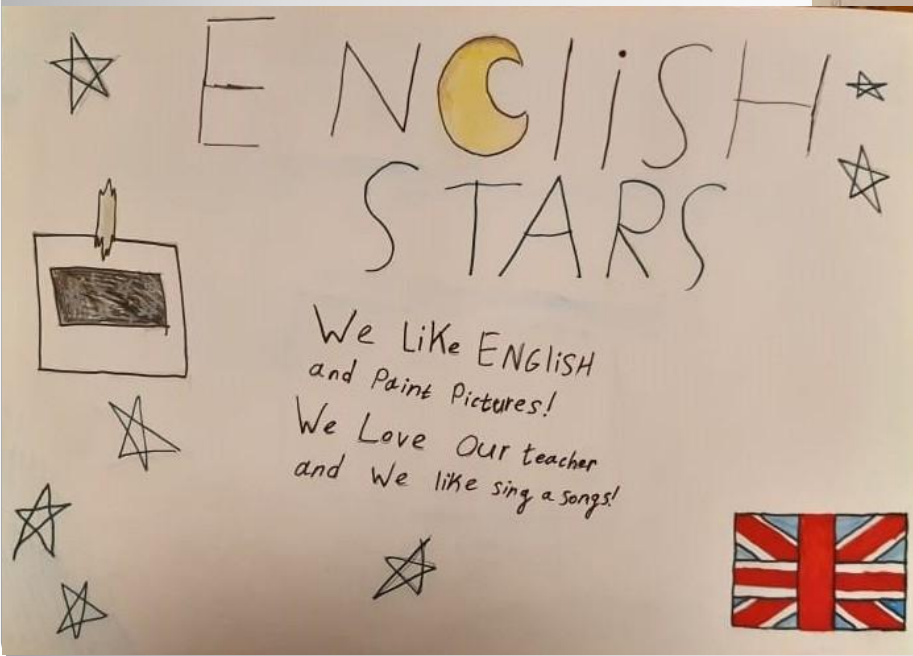 ENGLiSH
STARS
We LiKe ENGliSH
and Paint Pictures!
We Love Our teacher
and We like sing a songs!